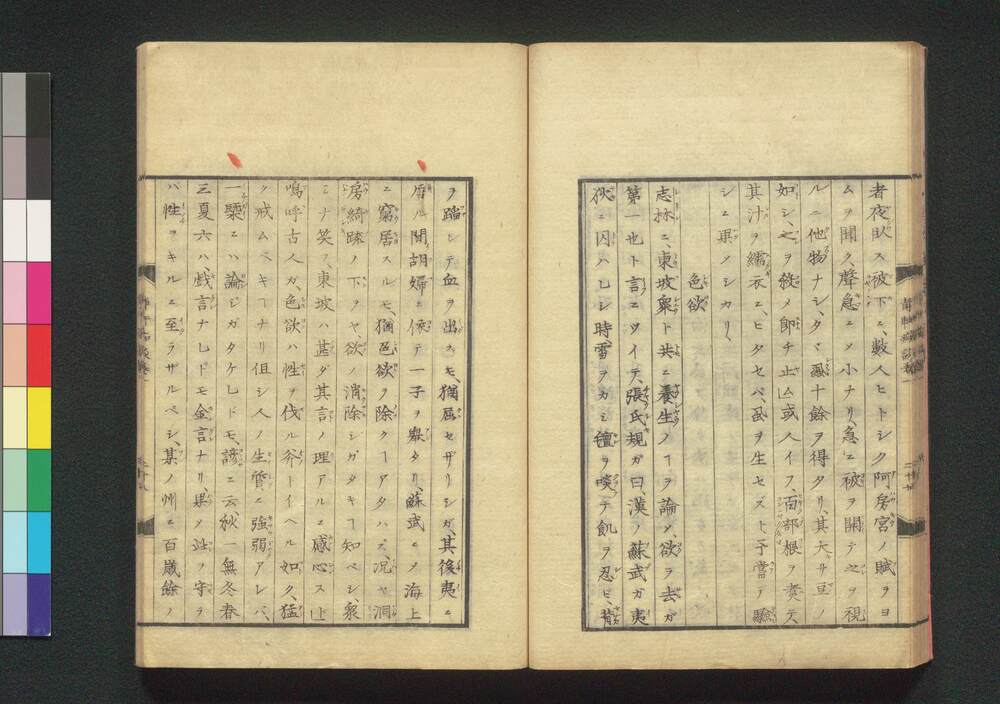 者夜臥ス被下ニ、數人ヒトシク阿房宮ノ賦ヲヨ
ムヲ聞ク、聲急ニメ小ナリ、急ニ被ヲ開テ之ヲ視
ルニ他物ナシ、タヾ風十餘ヲ得タリ、其大サ豆ノ
如シ、之ヲ殺メ即チ止ム或人イフ、百部根ヲ煮テ
其汁ヲ繻衣ニ、ヒタセバ、虱ヲ生セズト予嘗テ驗
シニ果メシカリ、
色欲
志林ニ、東坡衆ト共ニ養生ノヿヲ論メ欲ヲ去ガ
第一也ト言ニツイテ、張氏規ガ曰、漢ノ蘇武ガ夷
狄ニ囚ハレシ時、雪ヲカミ氊ヲ啖テ飢ヲ忍ヒ、背
ヲ蹈シテ血ヲ出スモ、猶屈セザリシガ、其後夷ニ
居ル間胡婦ニ偎テ一子ヲ擧タリ、蘇武ニメ海上
ニ窮居スルモ、猶色欲ヲ除クヿアタハズ、况ヤ洞
房綺疏ノ下ヲヤ欲ノ消除シガタキヿ知ベシ、衆
ミナ笑フ、東坡ハ甚ダ其言ノ理アルニ感心ス
嗚呼古人ガ、色欲ハ性ヲ伐ル斧トイヘル如ク、猛
ク戒ムベキヿナリ但シ人ノ生質ニ強弱アレバ、
一槩ニハ論ジガタケレドモ、諺ニ云、秋一無冬春
三夏六ハ、戯言ナレドモ金言ナリ、果メ此ヲ守ラ
ハ性ヲキルニ至ラザルベシ、某ノ州ニ百歳餘ノ